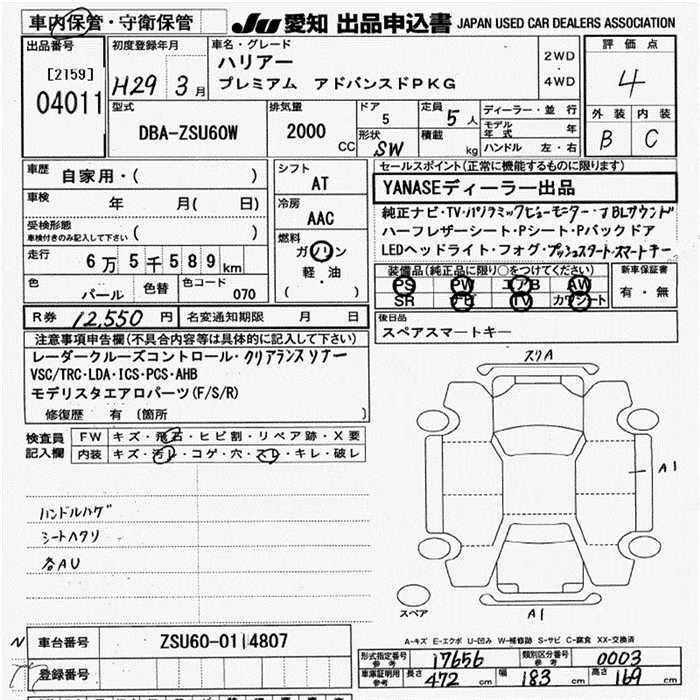 車内保管・守衛保管
JU 愛知 出品申込書 JAPAN USED CAR DEALERS ASSOCIATION
出品番号
[2159]
04011
初度登録年月
H29 3月
車名・グレード
ハリアー
プレミアム アドバンスドPKG
2WD
・
4WD
評価点
4
外装 内装
B C
型式
DBA-ZSU60W
排気量
2000
CC
ドア
5
形状
SW
定員
5人
積載
kg
ディーラー・並行
モデル年式 年
ハンドル 左・右
車歴
自家用・( )
車検
年 月( 日)
受検形態
車検付きのみ記入して下さい
( )
走行
6万5千589km
色
パール
色替
色コード
070
シフト
AT
冷房
AAC
燃料
ガソリン
軽・油
( )
セールスポイント(正常に機能するものに限ります)
YANASEディーラー出品
純正ナビ・TV・パノラミックビューモニター・JBLサウンド
ハーフレザーシート・Pシート・Pバックドア
LEDヘッドライト・フォグ・プッシュスタート・スマートキー
装備品(純正品に限り○をつけてください)
PS PW エアB AW
SR ナビ TV カワシート
新車保証書
有・無
後日品
スペアスマートキー
R券 12,550円
名変通知期限 月 日
注意事項申告欄(不具合内容等は具体的に記入して下さい)
レーダークルーズコントロール・クリアランスソナー
VSC/TRC・LDA・ICS・PCS・AHB
モデリスタエアロパーツ(F/S/R)
修復歴 有 〔箇所 〕
検査員
記入欄
FW キズ・飛石・ヒビ割・リペア跡・X要
内装 キズ・汚レ・コゲ・穴・スレ・キレ・破レ
ハンドルハゲ
シートヘタリ
各AU
スリA
A1
A1
スペア
A-キズ E-エクボ U-凹み W-補修跡 S-サビ C-腐食 XX-交換済
N
車台番号 ZSU60-0114807
登録番号
形式指定番号
参考
17656
類別区分番号
参考
0003
車庫証明用
参考
長さ 472cm 幅 183cm 高さ 169cm